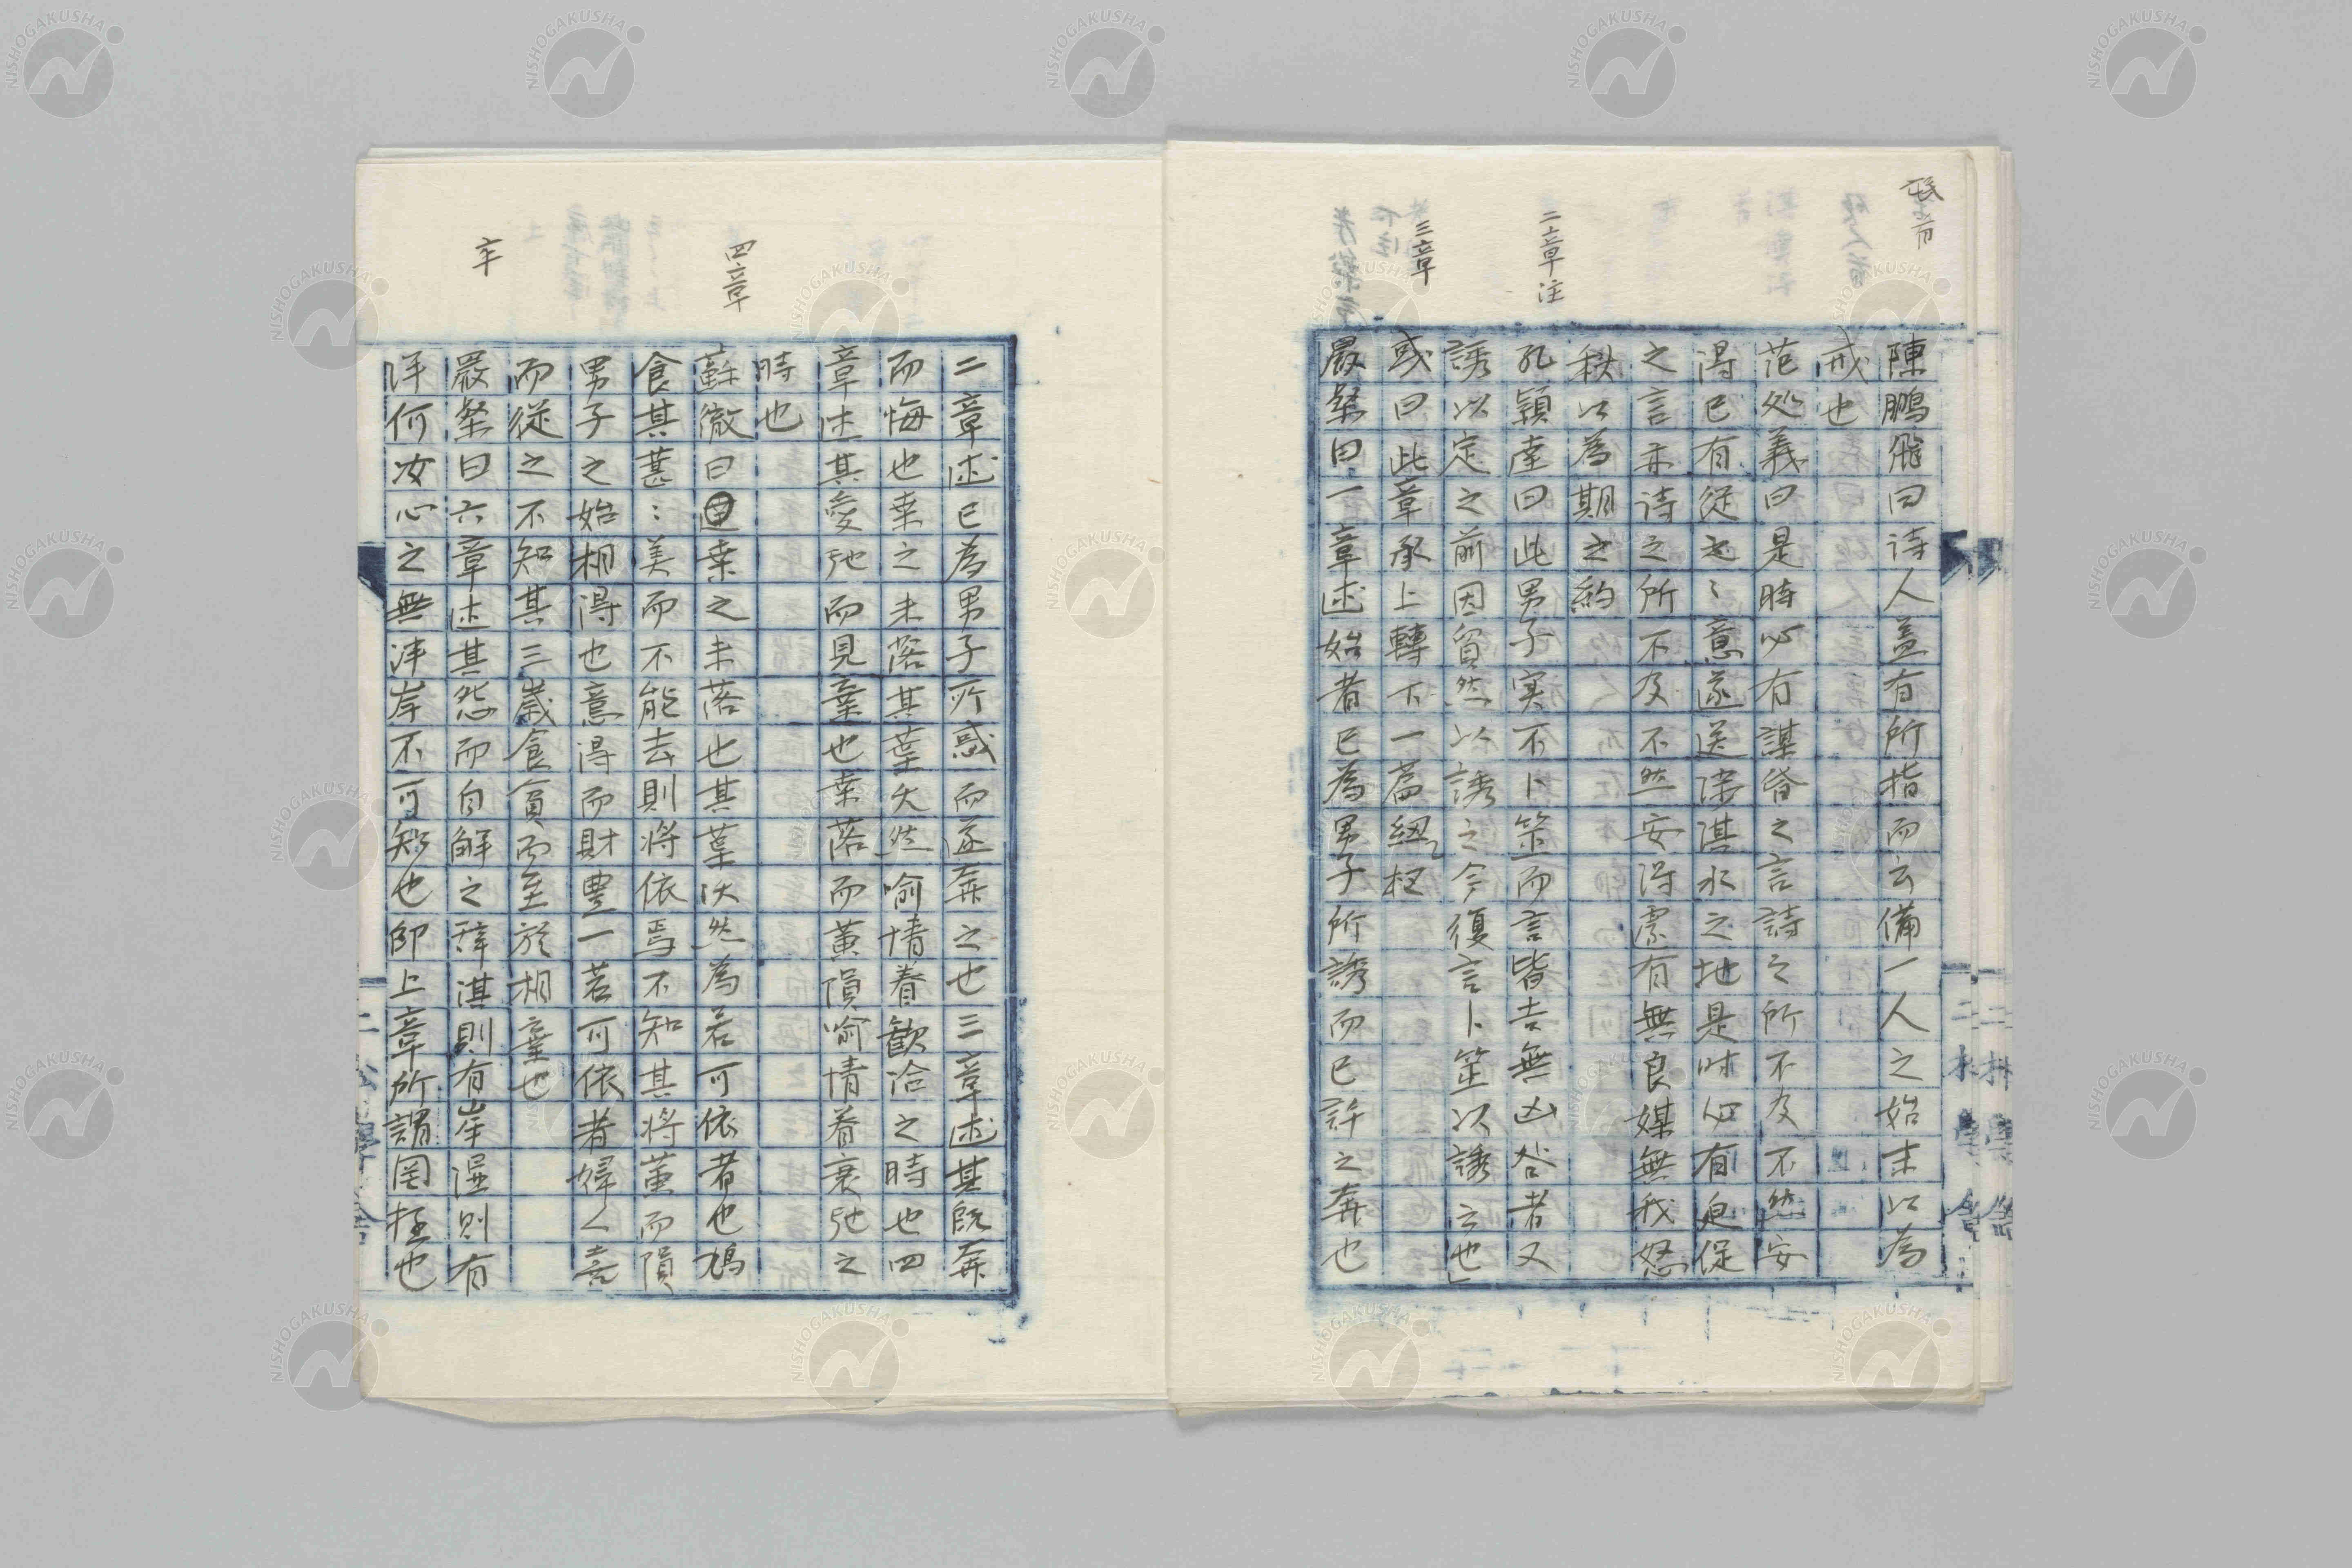 氓首
陳鵬飛曰诗人盖有所指而云備一人之始末以為
戒也
范处義曰是時必有謀昏之言詩之所不及不然安
得已有從之〻意遂送涉淇水之地是时必有迫促
之言亦诗之所不及不然安得須有無良媒無我怒
秋以為期之約
二章注
孔穎達曰此男子实不卜筮而言皆吉無凶咎者又
誘以定之前因貿然以誘之今復言卜筮以誘之也」
三章
或曰此章承上轉下一篇紐柾
嚴粲曰一章述始者已為男子所誘而已許之奔也
二章述已為男子所惑而遂奔之也三章述其既奔
而悔也桒之未落其葉沃然喻情眷歓洽之時也四
章述其愛弛而見棄也桒落而黄隕喻情眷衰弛之
時也
四章
蘇徹曰桒之未落也其葉沃然為若可依者也鳩
食其葚〻美而不能去則将依焉不知其将黄而隕
男子之始相得也意得而財豊一若可依者婦人喜
而從之不知其三歳食貧而至於相棄也
卒
嚴粲曰六章述其怨而自解之辞淇則有岸湿則有
泮何汝心之無泮岸不可知也即上章所謂罔极也